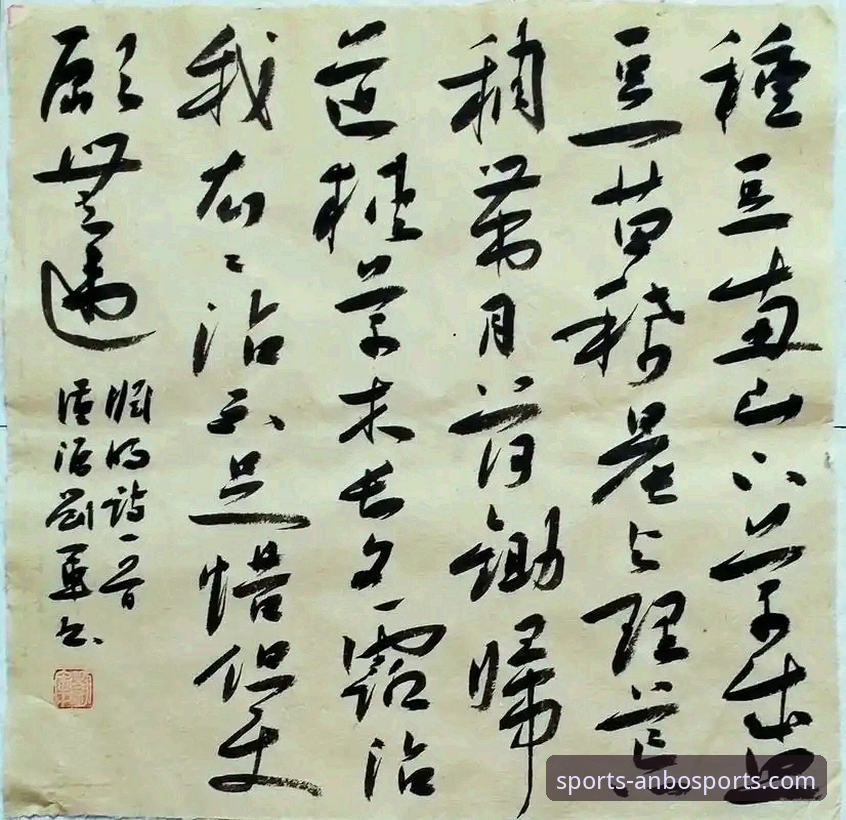 種豆南山下草盛
豆苗稀晨興理荒
穢帶月荷鋤歸
道狹草木長夕露沾
我衣〻沾不足惜但使
願無違
淵明詩一首
劉書
sports-anbosports.com